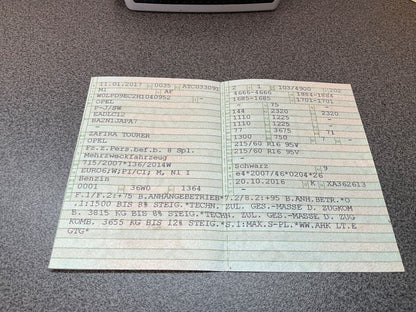 11.01.2017 0035 ATC033091
M1 AF
W0LPD9EC2H1040952 -
OPEL
P-J/SW
EADLG12
BA2N1JAPA7
-
ZAFIRA TOURER
OPEL
Fz.z.Pers.bef.b. 8 Spl.
Mehrzweckfahrzeug
715/2007*136/2014W
EURO6;W;PI/CI; M, N1 I
Benzin
0001 36W0 1364
2 1 103/4900 202
4666-4666 1884-1884
1685-1685 1701-1701
- 75 -
144 2320 2320
1110 1225 -
1110 1225 -
77 3675 71
1300 750 -
215/60 R16 95V
215/60 R16 95V
-
Schwarz 9
e4*2007/46*0204*26
20.10.2016 K XA362613
F.1/F.2:+75 B.ANHÄNGEBETRIEB*7.2/8.2:+95 B.ANH.BETR.*O
.1:1500 BIS 8% STEIG.*TECHN. ZUL. GES.-MASSE D. ZUGKOM
B. 3815 KG BIS 8% STEIG.*TECHN. ZUL. GES.-MASSE D. ZUG
KOMB. 3655 KG BIS 12% STEIG.*S.1:MAX.S-PL.*WW.AHK LT.E
GTG*